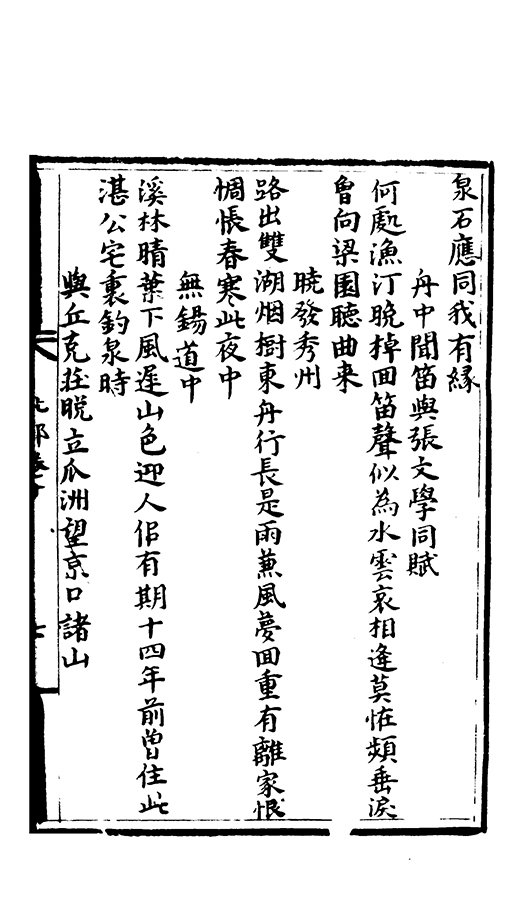 泉石應同我有緣
舟中聞笛與張文學同賦
何處漁汀晚棹回笛聲似為水雲哀相逢莫恠頻垂淚
曾向梁園聽曲来
曉發秀州
路出雙湖烟樹東舟行長是雨蕪風夢回重有離家恨
惆悵春寒此夜中
無錫道中
溪林晴葉下風遲山色迎人佀有期十四年前曾住此
湛公宅裏釣泉時
與丘克莊晚立瓜洲望京口諸山